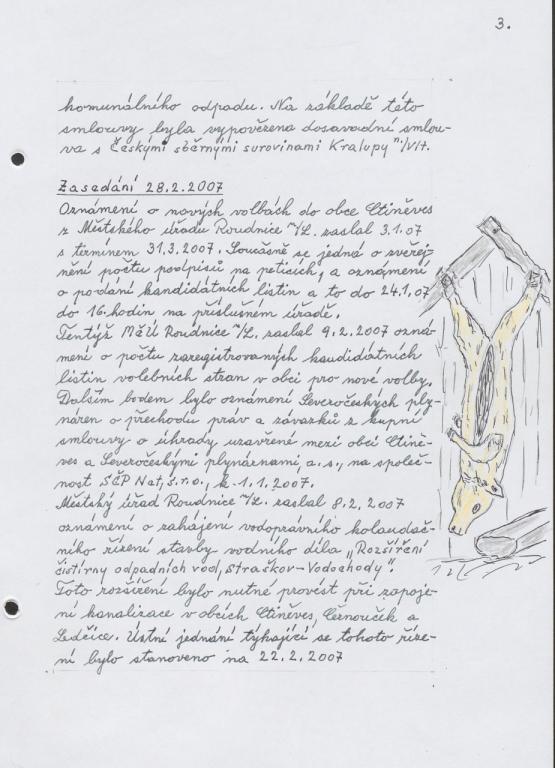 3.
komunálního odpadu. Na základě této
smlouvy byla vypovězena dosavadní smlou-
va s Českými sběrnými surovinami Kralupy n./Vlt.
Zasedání 28.2.2007
Oznámení o nových volbách do obce Ctiněves
z Městského úřadu Roudnice n/L. zaslal 3.1.07
s termínem 31.3.2007. Současně se jedná o zveřej-
nění počtu podpisů na peticích, a oznámení
o podání kandidátních listin a to do 24.1.07
do 16. hodin na příslušném úřadě.
Tentýž MěÚ Roudnice n/L. zaslal 9.2.2007 ozná-
mení o počtu zaregistrovaných kandidátních
listin volebních stran v obci pro nové volby.
Dalším bodem bylo oznámení Severočeských ply-
náren o přechodu práv a závazků z kupní
smlouvy o úhrady uzavřené mezi obcí Ctině-
ves a Severočeskými plynárnami, a.s., na společ-
nost SČP Net, s.r.o., k 1.1.2007.
Městský úřad Roudnice n/L. zaslal 8.2.2007
oznámení o zahájení vodoprávního kolaudač-
ního řízení stavby vodního díla "Rozšíření
čistírny odpadních vod, Straškov-Vodochody".
Toto rozšíření bylo nutné provést při zapoje-
ní kanalizace v obcích Ctiněves, Černouček a
Ledčice. Ústní jednání týkající se tohoto říze-
ní bylo stanoveno na 22.2.2007